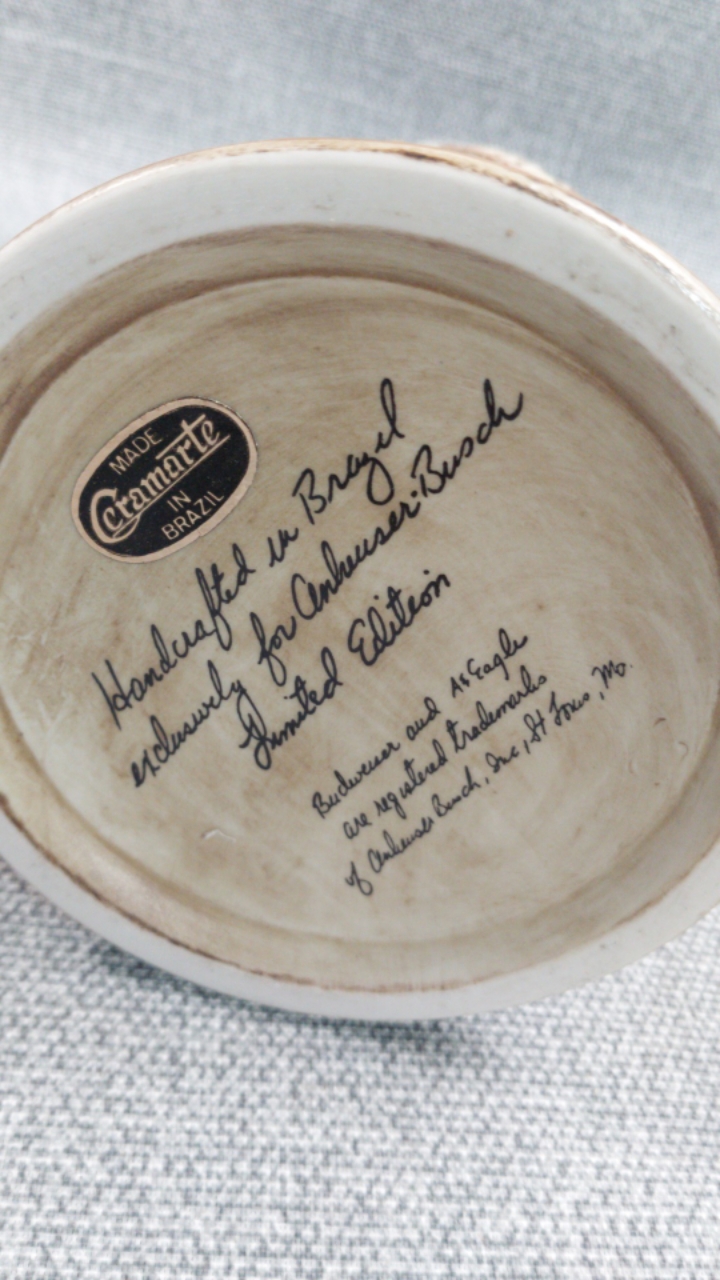 MADE
Ceramarte
IN
BRAZIL
Handcrafted in Brazil
exclusively for Anheuser-Busch
Limited Edition
Budweiser and A&Eagle
are registered trademarks
of Anheuser Busch, Inc, St Louis, Mo.